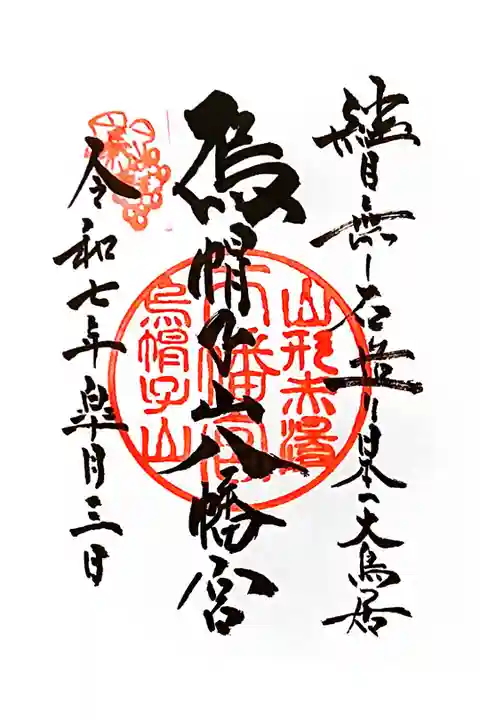 継目無し石造り日本一大鳥居
烏帽子山八幡宮
令和七年皐月三日
山形赤湯
八幡宮
烏帽子山